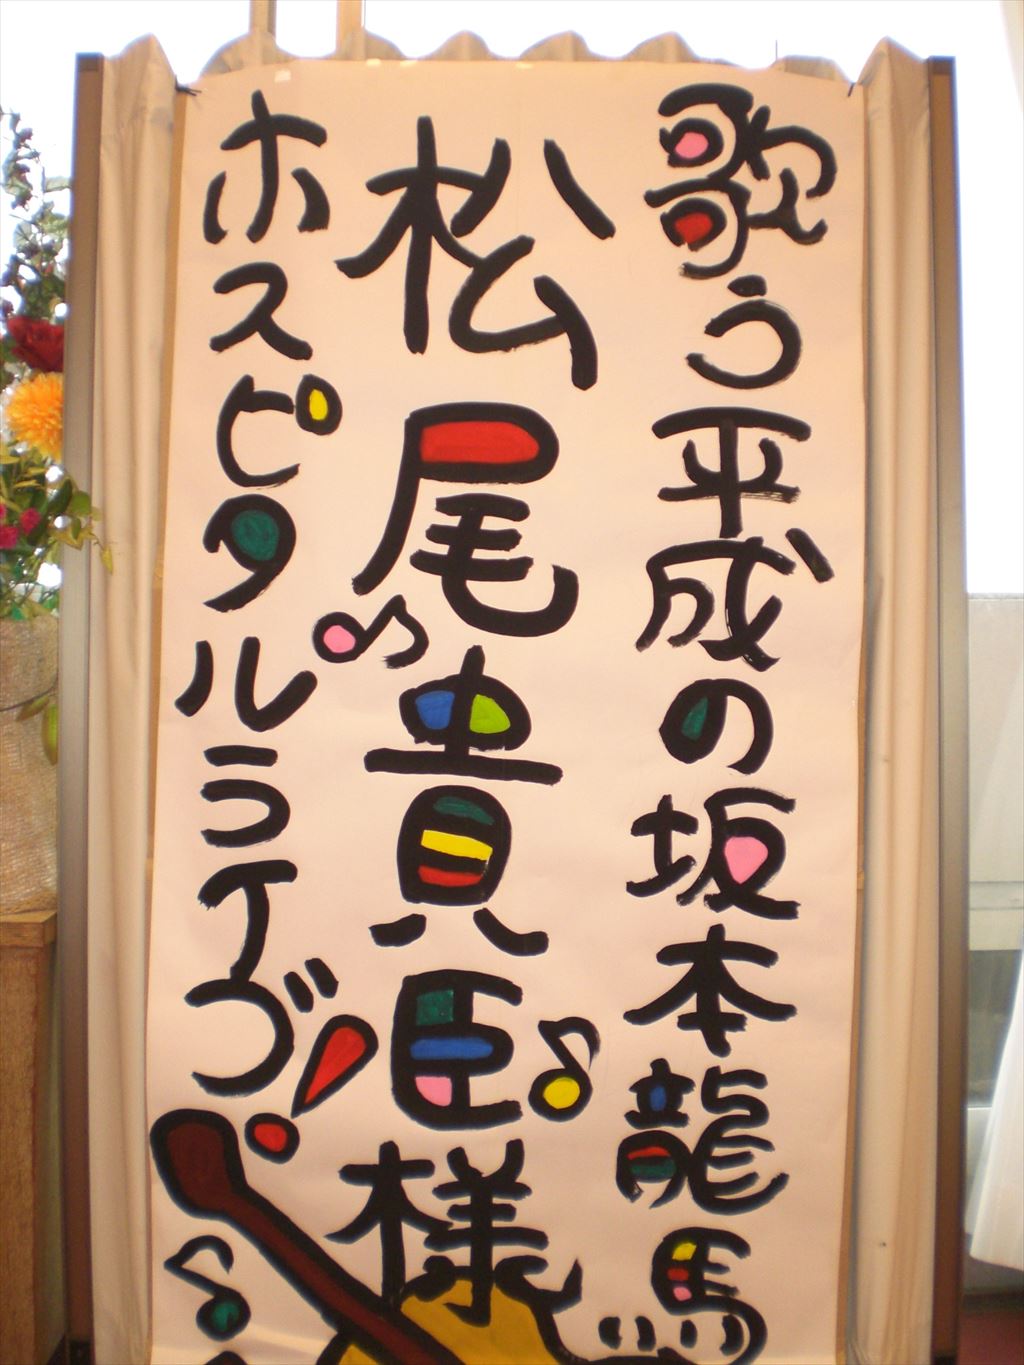 歌う平成の坂本龍馬
松尾貴臣様
ホスピタルライブ!